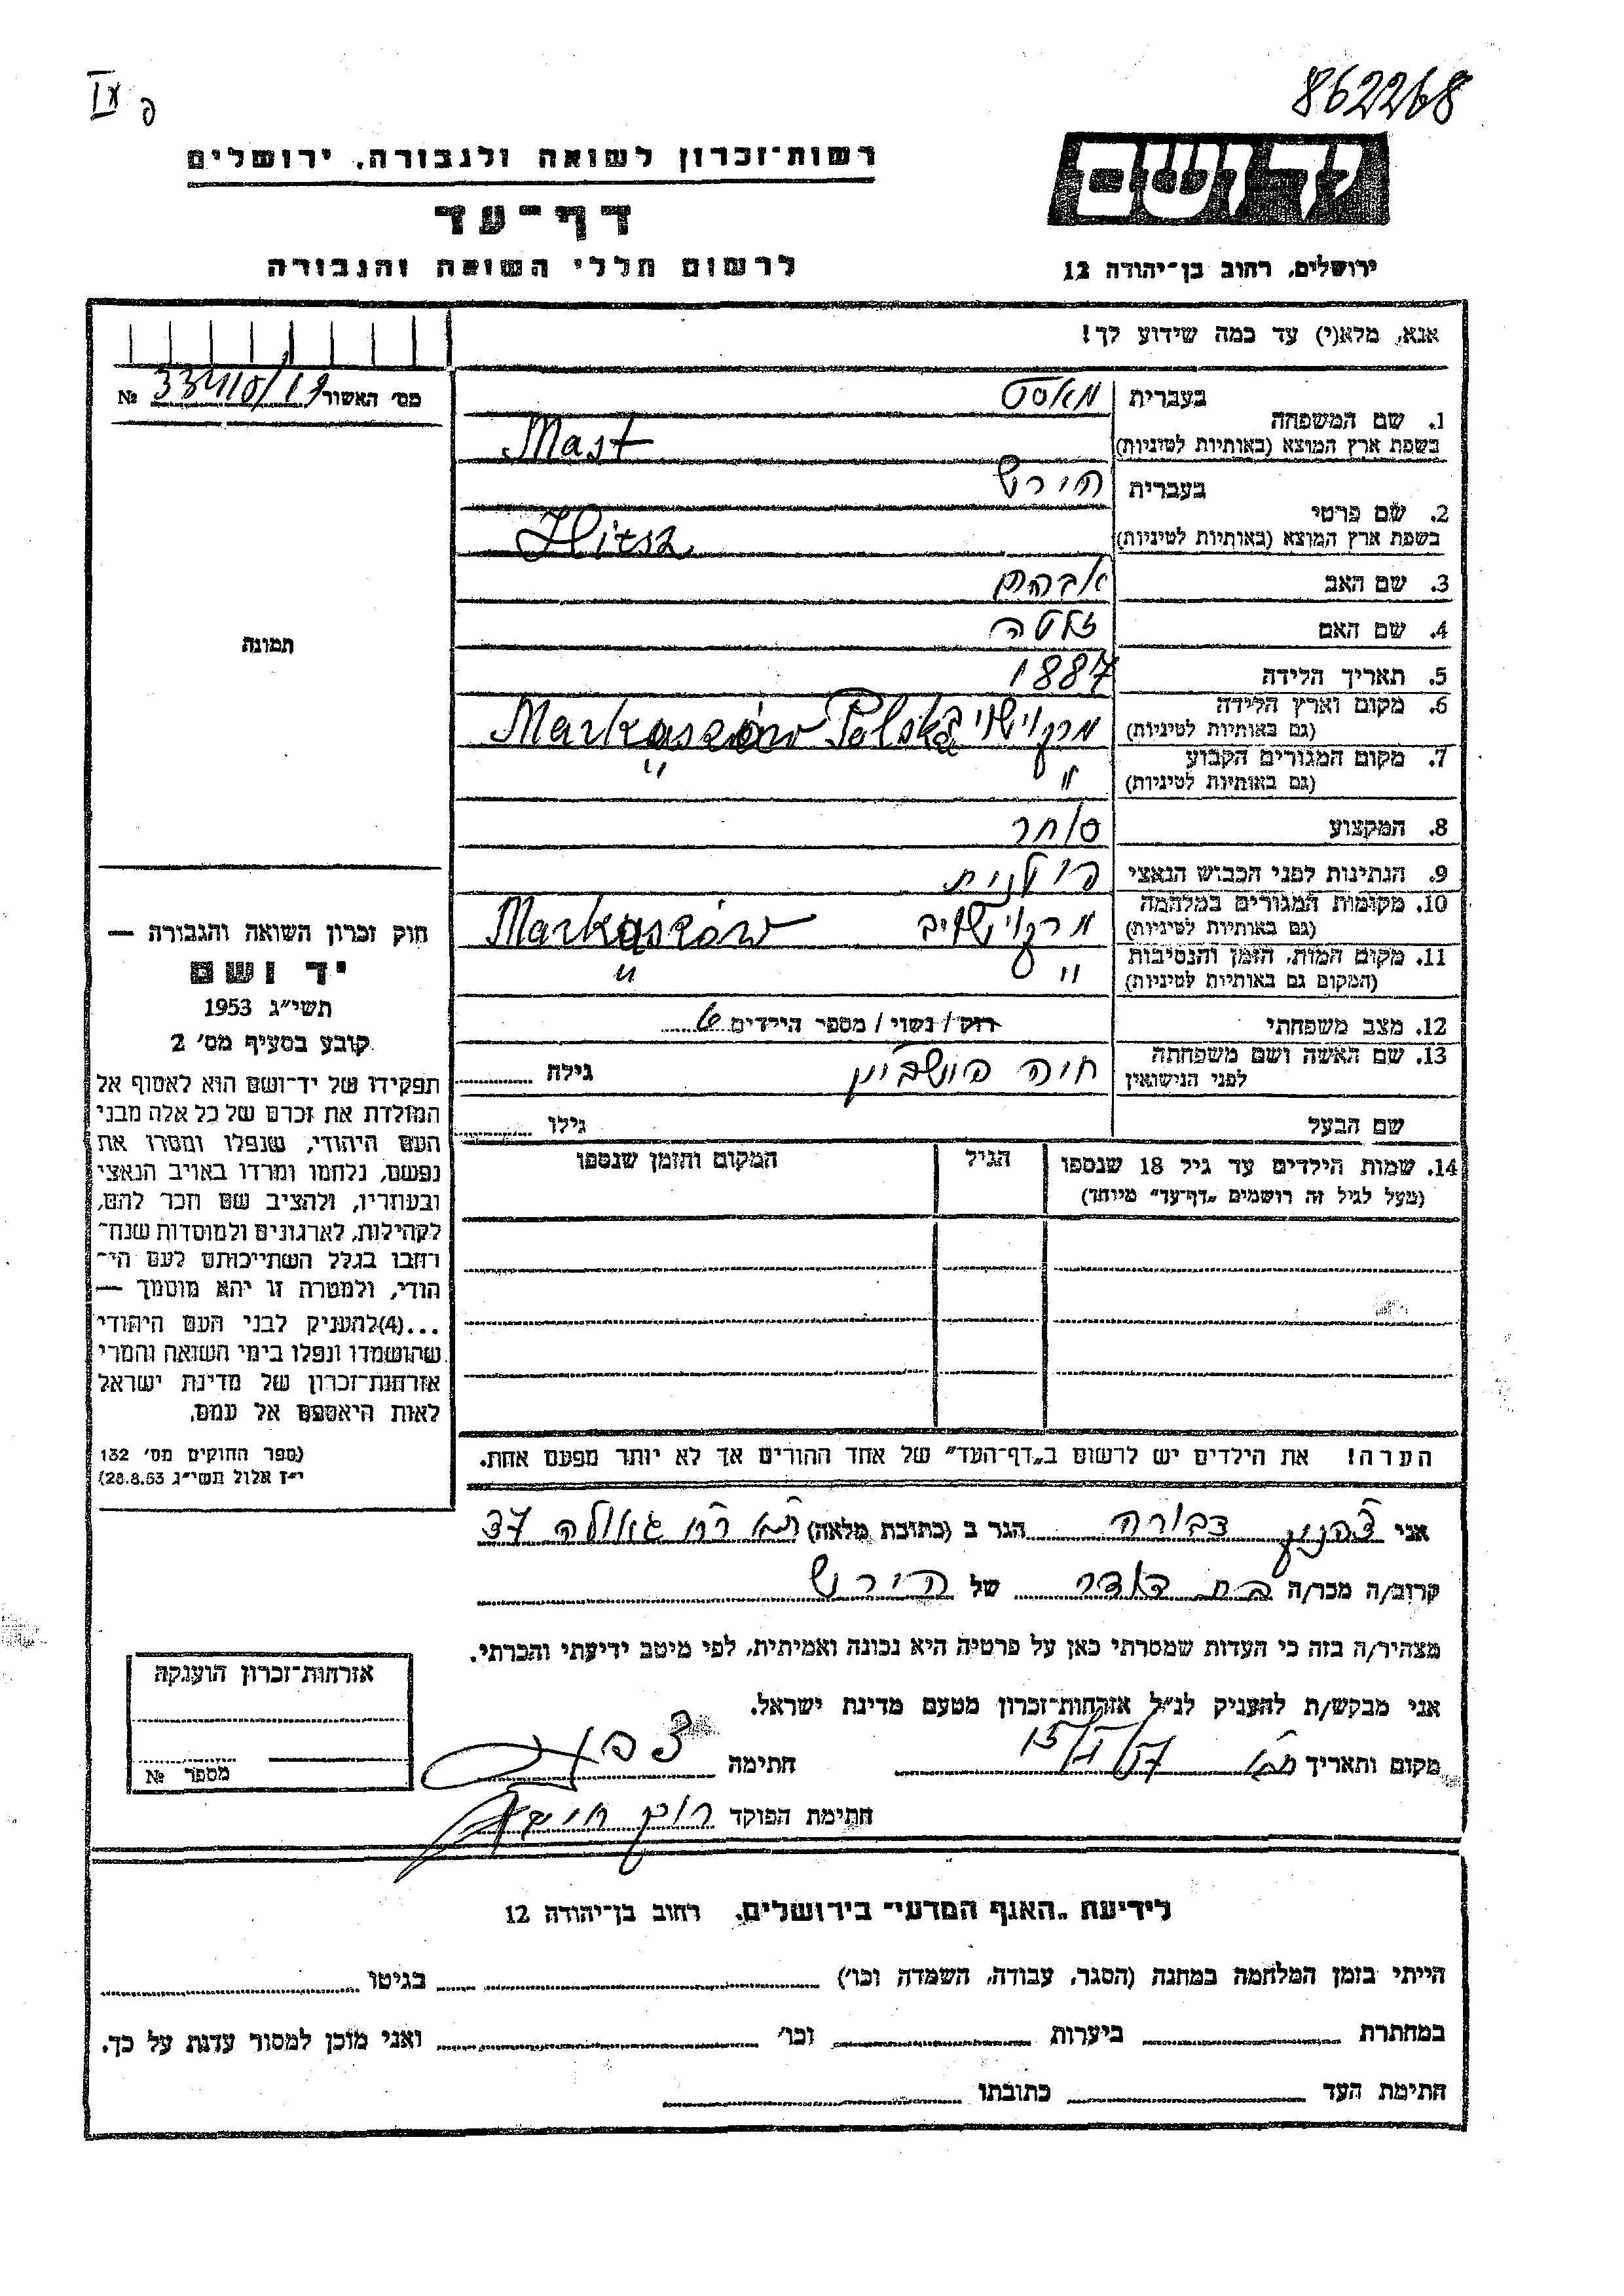 862268
רשות־זכרון לשואה ולגבורה, ירושלים
דף־עד
לרשום חללי השואה והגבורה
יד ושם
ירושלים, רחוב בן־יהודה 12
אנא, מלא(י) עד כמה שידוע לך!
מס׳ האשור №
1. שם המשפחה
בעברית מאסט
בשפת ארץ המוצא (באותיות לטיניות) Mast
2. שם פרטי
בעברית הירש
בשפת ארץ המוצא (באותיות לטיניות) Hirsz
3. שם האב אברהם
4. שם האם זלטה
5. תאריך הלידה 1887
6. מקום וארץ הלידה
(גם באותיות לטיניות) Markaszów Polska
7. מקום המגורים הקבוע
(גם באותיות לטיניות) " "
8. המקצוע סוחר
9. הנתינות לפני הכבוש הנאצי פולנית
10. מקומות המגורים במלחמה
(גם באותיות לטיניות) Markaszów
11. מקום המות, הזמן והנסיבות
(המקום גם באותיות לטיניות) " "
12. מצב משפחתי רוק / נשוי / מספר הילדים 6
13. שם האשה ושם משפחתה
לפני הנישואין חיה גילה
שם הבעל גילו
14. שמות הילדים עד גיל 18 שנספו הגיל המקום והזמן שנספו
(מעל לגיל זה רושמים „דף־עד” מיוחד)
הערה! את הילדים יש לרשום ב„דף־העד” של אחד ההורים אך לא יותר מפעם אחת.
תמונה
חוק זכרון השואה והגבורה —
יד ושם
תשי״ג 1953
קובע בסעיף מס׳ 2
תפקידו של יד־ושם הוא לאסוף אל
המולדת את זכרם של כל אלה מבני
העם היהודי, שנפלו ומסרו את
נפשם, נלחמו ומרדו באויב הנאצי
ובעוזריו, ולהציב שם וזכר להם,
לקהילות, לארגונים ולמוסדות שנח־
רבו בגלל השתייכותם לעם הי־
הודי, ולמטרה זו יהא מוסמך —
...(4) להעניק לבני העם היהודי
שהושמדו ונפלו בימי השואה והמרי
אזרחות־זכרון של מדינת ישראל
לאות היאספם אל עמם.
(ספר החוקים מס׳ 132
י״ז אלול תשי״ג 28.8.53)
אני דבורה הגר ב (כתובת מלאה) גאולה 37
קרוב/ה מכר/ה של הירש
מצהיר/ה בזה כי העדות שמסרתי כאן על פרטיה היא נכונה ואמיתית, לפי מיטב ידיעתי והכרתי.
אני מבקש/ת להעניק לנ״ל אזרחות־זכרון מטעם מדינת ישראל.
מקום ותאריך חתימה
חתימת הפוקד
אזרחות־זכרון הוענקה
מספר №
לידיעת „האגף המדעי” בירושלים, רחוב בן־יהודה 12
הייתי בזמן המלחמה במחנה (הסגר, עבודה, השמדה וכו׳) בגיטו
במחתרת ביערות וכו׳ ואני מוכן למסור עדות על כך.
חתימת העד כתובתו